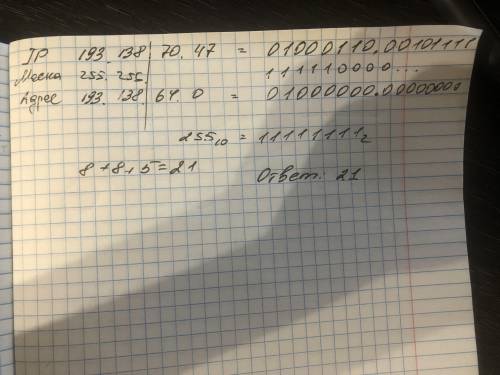 IP 193.138 70.47 = 01000110.00101111
Маска 255.255. 111110000...
Адрес 193.138.64.0 = 01000000.00000000
255₁₀ = 11111111₂
8+8+5=21 Ответ: 21